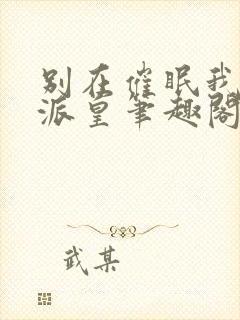 别在催眠我
派皇笔趣阁
武某